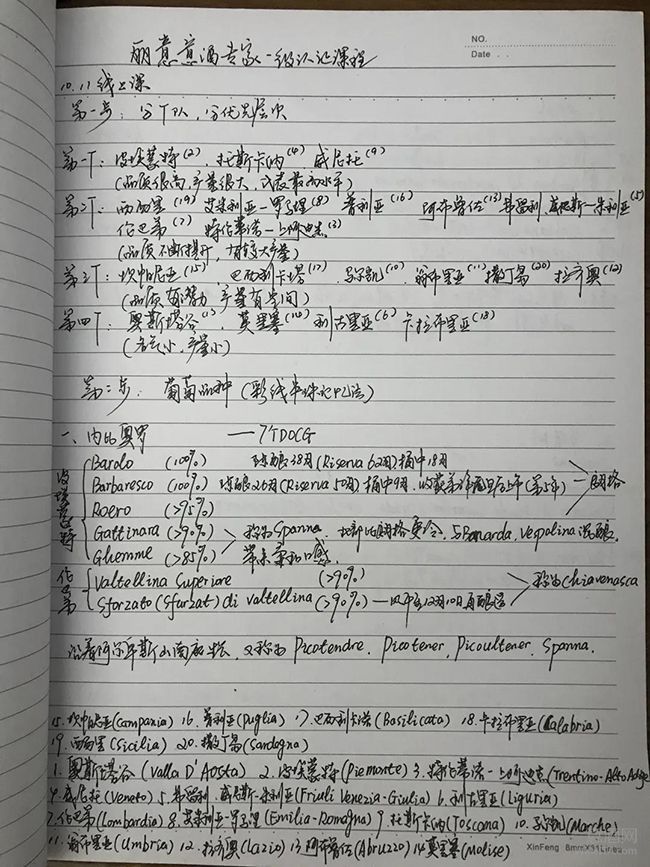 NO.
Date . .
丽意意酒专家一级认证课程
10.11 线上课
第一步：分T队，分优先层次
第一T：皮埃蒙特(2)，托斯卡纳(4)，威尼托(9)
(品质很高，产量很大，代表最高水平)
第二T：西西里(19) 艾米利亚-罗马涅(8) 普利亚(16) 阿布鲁佐(13) 弗留利,威尼斯-朱利亚(5)
伦巴第(7) 特伦蒂诺-上阿迪杰(3)
(品质不断提升，有较大产量)
第三T：坎帕尼亚(15)，巴西利卡塔(17)，马尔凯(10)，翁布里亚(11) 撒丁岛(20) 拉齐奥(12)
(品质有潜力 产量有空间)
第四T：奥斯塔谷(1)，莫里塞(14) 利古里亚(6) 卡拉布里亚(18)
(名气小，产量小)
第二步：葡萄品种 (彩线串珠记忆法)
一、内比奥罗 ——7个DOCG
皮埃蒙特
Barolo (100%) 陈酿38月(Riserva 62月)桶中18月
Barbaresco (100%) 陈酿26月(Riserva 50月)桶中9月
Roero (>95%)
Gattinara (>90%) 称为Spanna. 与Bonarda, Vespolina混酿.
Ghemme (>85%) 带来柔和口感.
伦巴第
Valtellina Superiore (>90%) 称为Chiavenasca
Sforzato (Sfurzat) di Valtellina (>90%) —风干至12月10日再酿造
沿着阿尔卑斯山南麓 又称为 Picotendre, Picotener, Picoultener, Spanna.
15. 坎帕尼亚(Campania) 16. 普利亚(Puglia) 17. 巴西利卡塔(Basilicata) 18. 卡拉布里亚(Calabria)
19. 西西里(Sicilia) 20. 撒丁岛(Sardegna)
1. 奥斯塔谷(Valla D'Aosta) 2. 皮埃蒙特(Piemonte) 3. 特伦蒂诺-上阿迪杰(Trentino-Alto Adige
4. 威尼托(Veneto) 5. 弗留利-威尼斯-朱利亚(Friuli Venezia-Giulia) 6. 利古里亚(Liguria)
7. 伦巴第(Lombardia) 8. 艾米利亚-罗马涅(Emilia-Romagna) 9. 托斯卡纳(Toscana) 10. 马尔凯(Marche)
11. 翁布里亚(Umbria) 12. 拉齐奥(Lazio) 13. 阿布鲁佐(Abruzzo) 14. 莫里塞(Molise)
XinFeng 8mmX31Lines